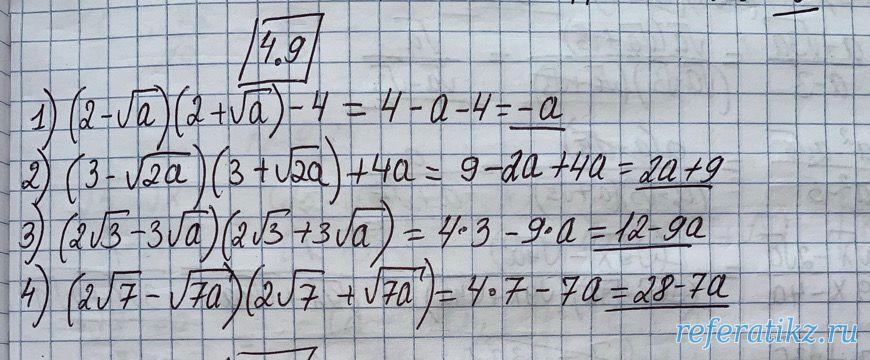 4.9
1) (2-√a)(2+√a)-4 = 4-a-4=-a
2) (3-√2a)(3+√2a)+4a = 9-2a+4a=2a+9
3) (2√3-3√a)(2√3+3√a)=4·3-9·a=12-9a
4) (2√7-√7a)(2√7+√7a)=4·7-7a=28-7a
referatikz.ru